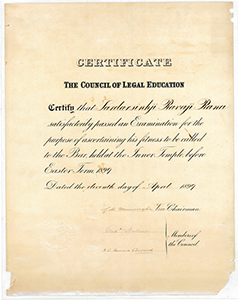 CERTIFICATE
THE COUNCIL OF LEGAL EDUCATION
Certify that Sardarsinhji Ravaji Rana
satisfactorily passed an Examination for the
purpose of ascertaining his fitness to be called
to the Bar, held at the Inner Temple before
Easter Term 1899
Dated the eleventh day of April 1899
Vice Chairman.
Members of
the Council